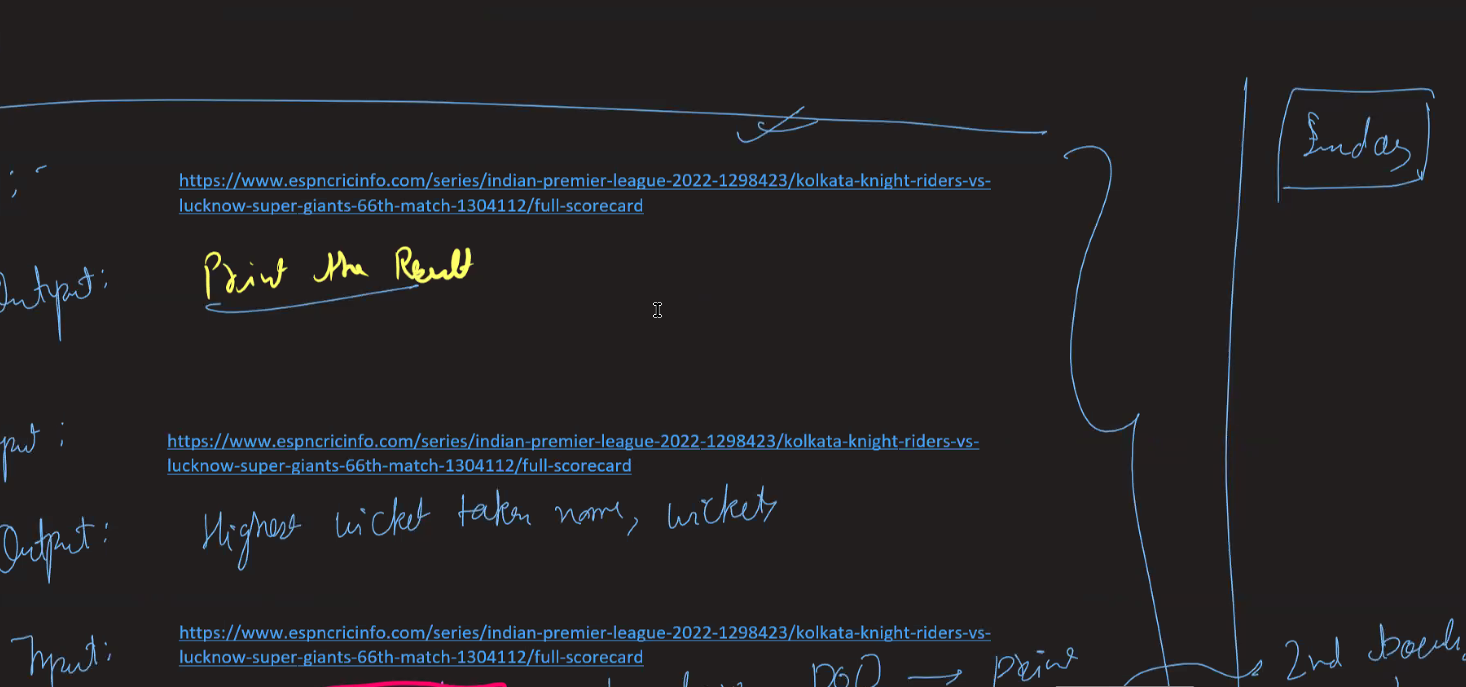 Sunday
https://www.espncricinfo.com/series/indian-premier-league-2022-1298423/kolkata-knight-riders-vs-
lucknow-super-giants-66th-match-1304112/full-scorecard
Output:
Print the Result
put :
https://www.espncricinfo.com/series/indian-premier-league-2022-1298423/kolkata-knight-riders-vs-
lucknow-super-giants-66th-match-1304112/full-scorecard
Output:
Highest wicket taken name, wickets
Input:
https://www.espncricinfo.com/series/indian-premier-league-2022-1298423/kolkata-knight-riders-vs-
lucknow-super-giants-66th-match-1304112/full-scorecard
→ Print
2nd